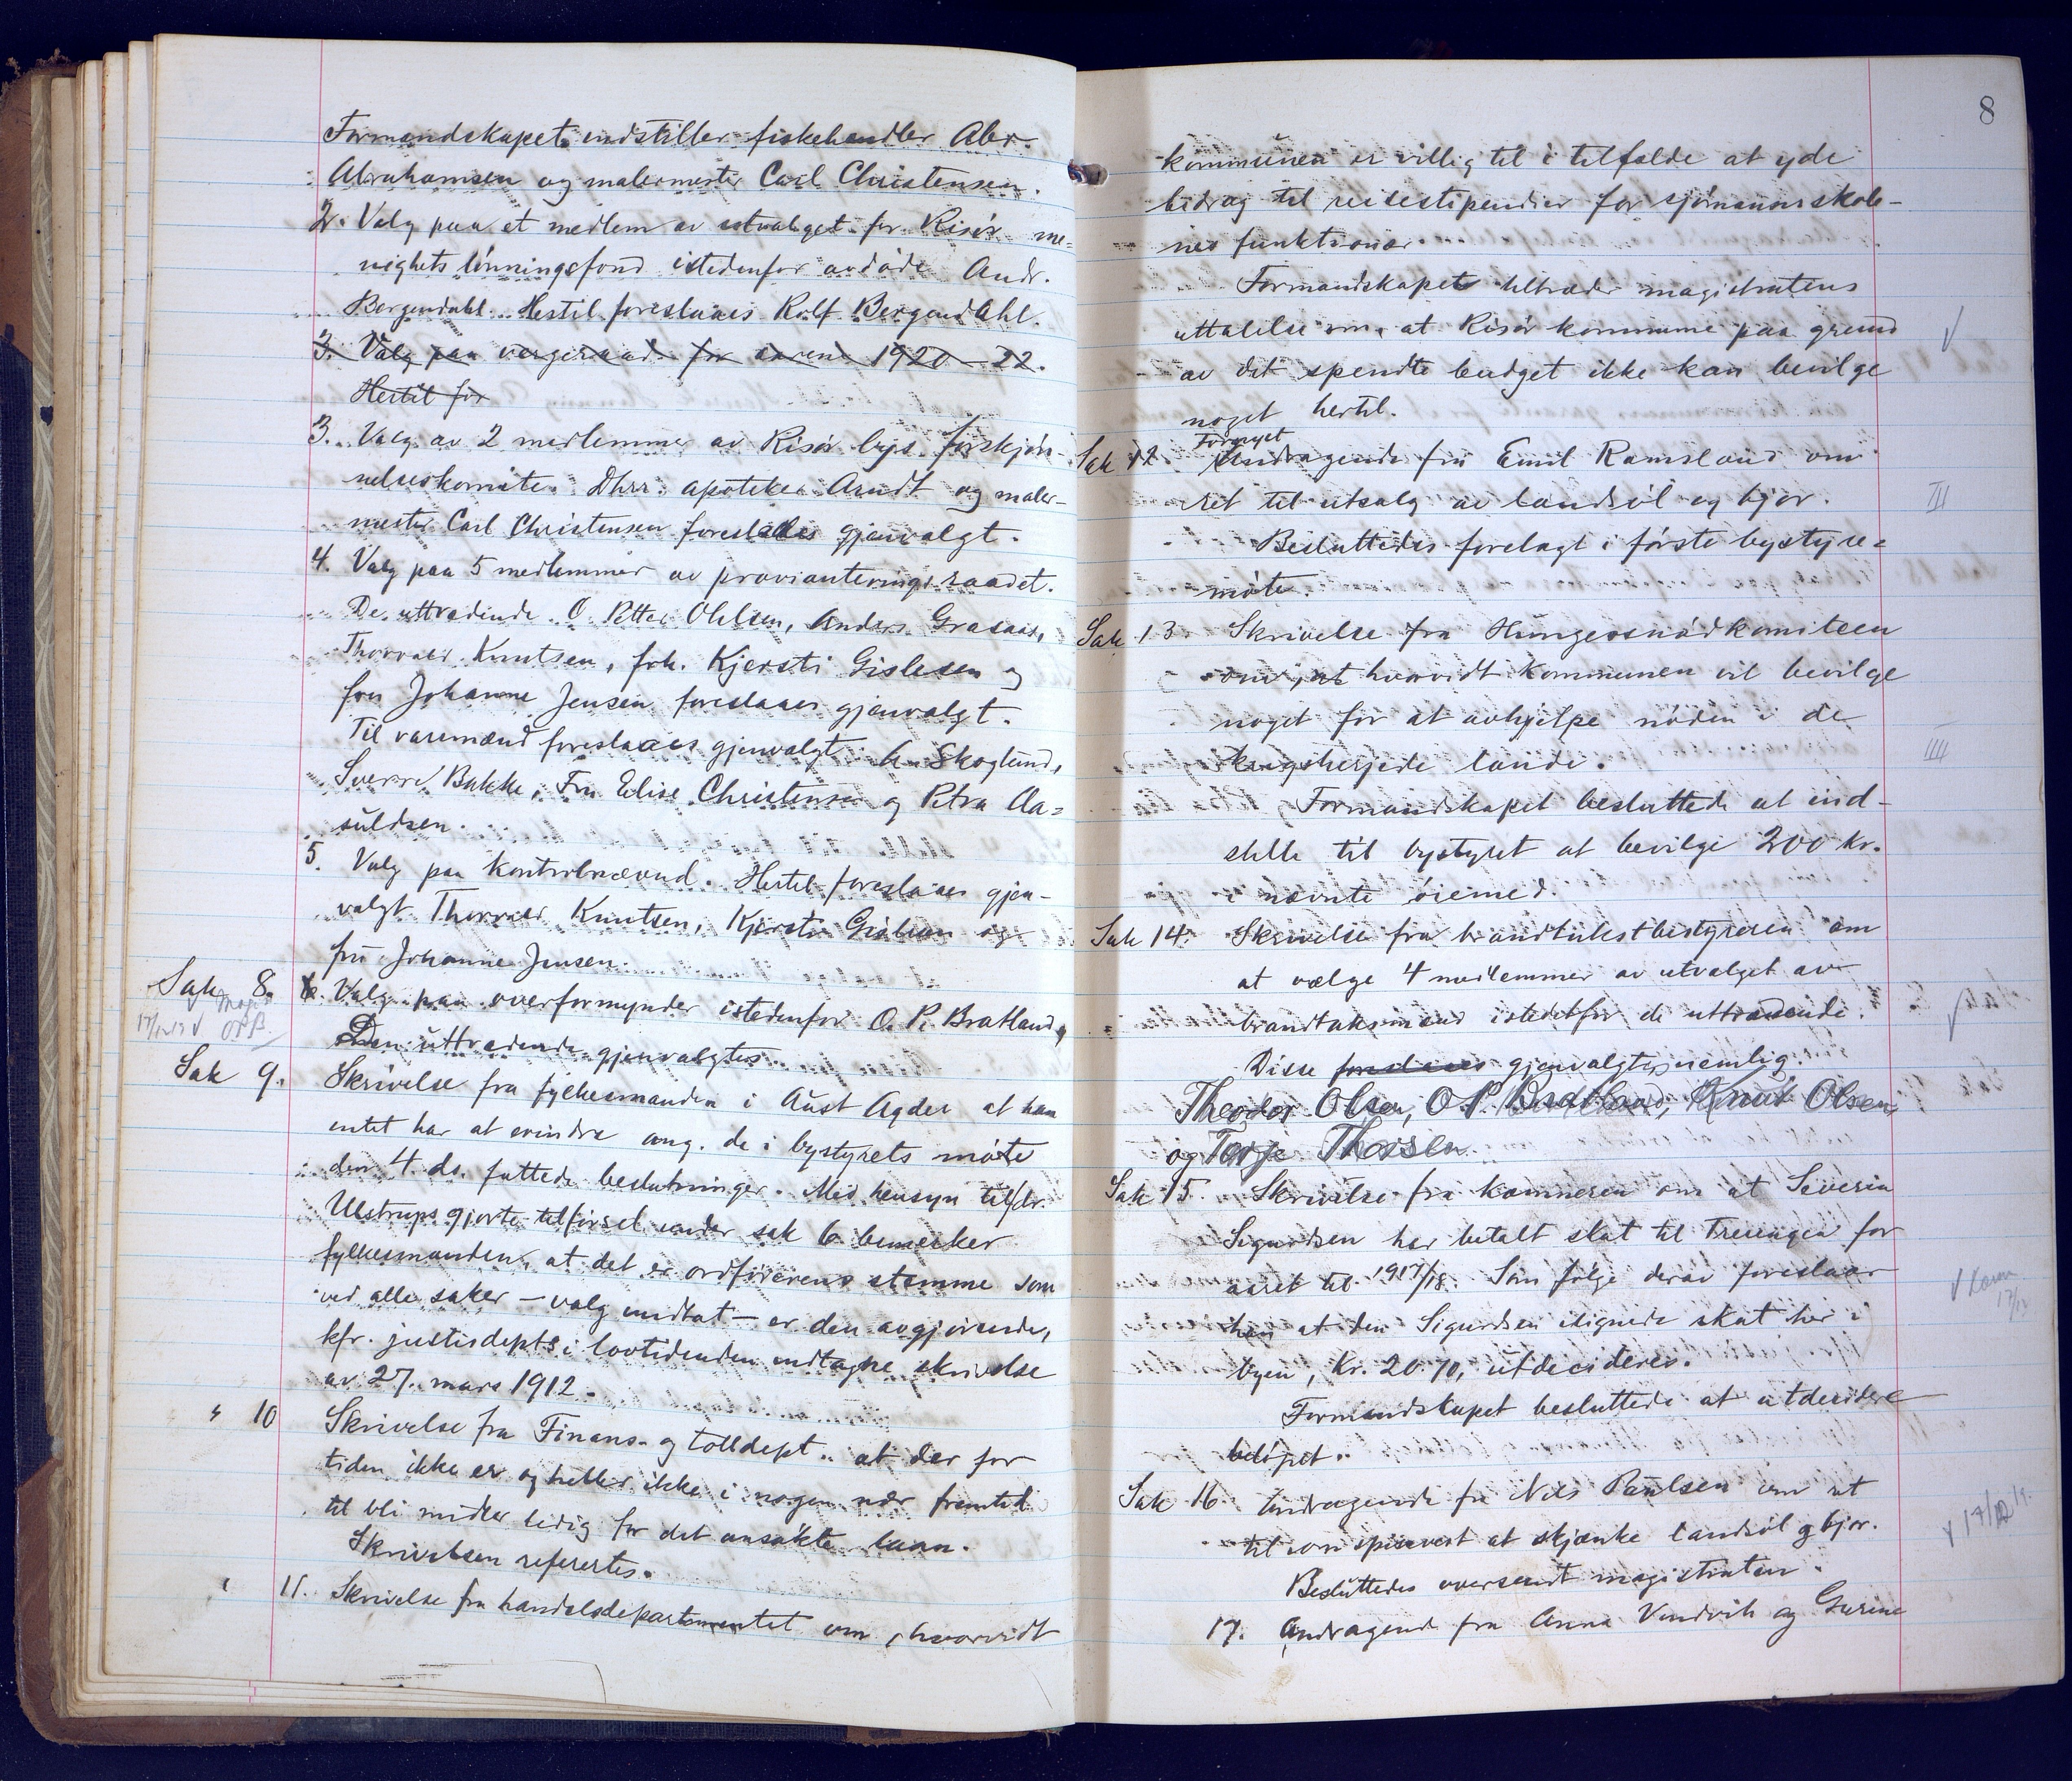 Formandskapet indstiller fiskehandler Abr.
Abrahamsen og malermester Carl Christensen.
2. Valg paa et medlem av utvalget for Risør me=
nighets lønningsfond istedenfor avdøde Andr.
Bergendahl. Hertil foreslaaes Rolf Bergendahl.
3. Valg paa vergeraad for aarene 1920-22.
Hertil for
3. Valg av 2 medlemmer av Risør bys forskjøn-
nelseskomite. Dhrr. apoteker Arndt og maler-
mester Carl Christensen foreslaaes gjenvalgt.
4. Valg paa 5 medlemmer av provianteringsraadet.
De uttrædende O. Petter Ohlsen, Anders Grasaas,
Thorvald Knutsen, frk. Kjersti Gislesen og
fru Johanne Jensen foreslaaes gjenvalgt.
Til varemænd foreslaaes gjenvalgt: A. Skoglund,
Sverre Bakke, Fru Elise Christensen og Petra Aa=
suldsen.
5. Valg paa kontrolnævnd. Hertil foreslaaes gjen-
valgt Thorvald Knutsen, Kjersti Gislesen og
fru Johanne Jensen.
Sak 8. 6. Valg paa overformynder istedenfor O. P. Bratland,
Den uttrædende gjenvalgtes.
Sak 9. Skrivelse fra fylkesmanden i Aust Agder at han
intet har at erindre ang. de i bystyrets møte
den 4. ds. fattede beslutninger. Med hensyn til hr.
Ulstrups gjorte tilførsel under sak 6 bemerker
fylkesmanden, at det er ordførerens stemme som
ved alle saker - valg undtat - er den avgjørende,
kfr. justisdepts i lovtidenden indtagne skrivelse
av 27. mars 1912.
" 10 Skrivelse fra Finans- og tolldept. at der for
tiden ikke er og heller ikke i nogen nær fremtid
til bli midler ledig for det ansøkte laan.
Skrivelsen refertes.
" 11. Skrivelse fra handelsdepartementet om, hvorvidt
8
kommunen er villig til i tilfælde at yde
bidrag til reisestipendier for sjømannsskole-
nes funktionær.
Formandskapet tiltræder magistratens
uttalelse om, at Risør kommune paa grund
av det spendte budget ikke kan bevilge
noget hertil.
Sak 12. Fornyet Andragende fra Emil Ramsland om
ret til utsalg av landsøl og bjor.
Besluttedes forelagt i første bystyre=
møte.
Sak 13. Skrivelse fra Hungersnødkomiteen
om, at hvorvidt kommunen vil bevilge
noget for at avhjelpe nøden i de
krigsherjede lande.
Formandskapet besluttede at ind-
stille til bystyret at bevilge 200 kr.
i nævnte øiemed.
Sak 14. Skrivelse fra brandtakstbestyreren om
at vælge 4 medlemmer av utvalget av
brandtakstmænd istedetfor de uttrædende.
Disse foreslaaes gjenvalgtes, nemlig:
Theodor Olsen, O. P. Bratland, Knut Olsen,
og Terje Thorsen.
Sak 15. Skrivelse fra kæmneren om at Severin
Sigurdsen har betalt skat til Treungen for
aaret til 1917/18. Som følge derav foreslaar
han at den Sigurdsen ilignede skat her i
byen, kr. 20.70, utdecideres.
Formandskapet besluttede at utdecidere
beløpet.
Sak 16. Andragende fra Nils Paulsen om ret
til som spisevert at skjænke landsøl og bjor.
Besluttedes oversendt magistraten.
17. Andragende fra Anna Vindvik og Gurine